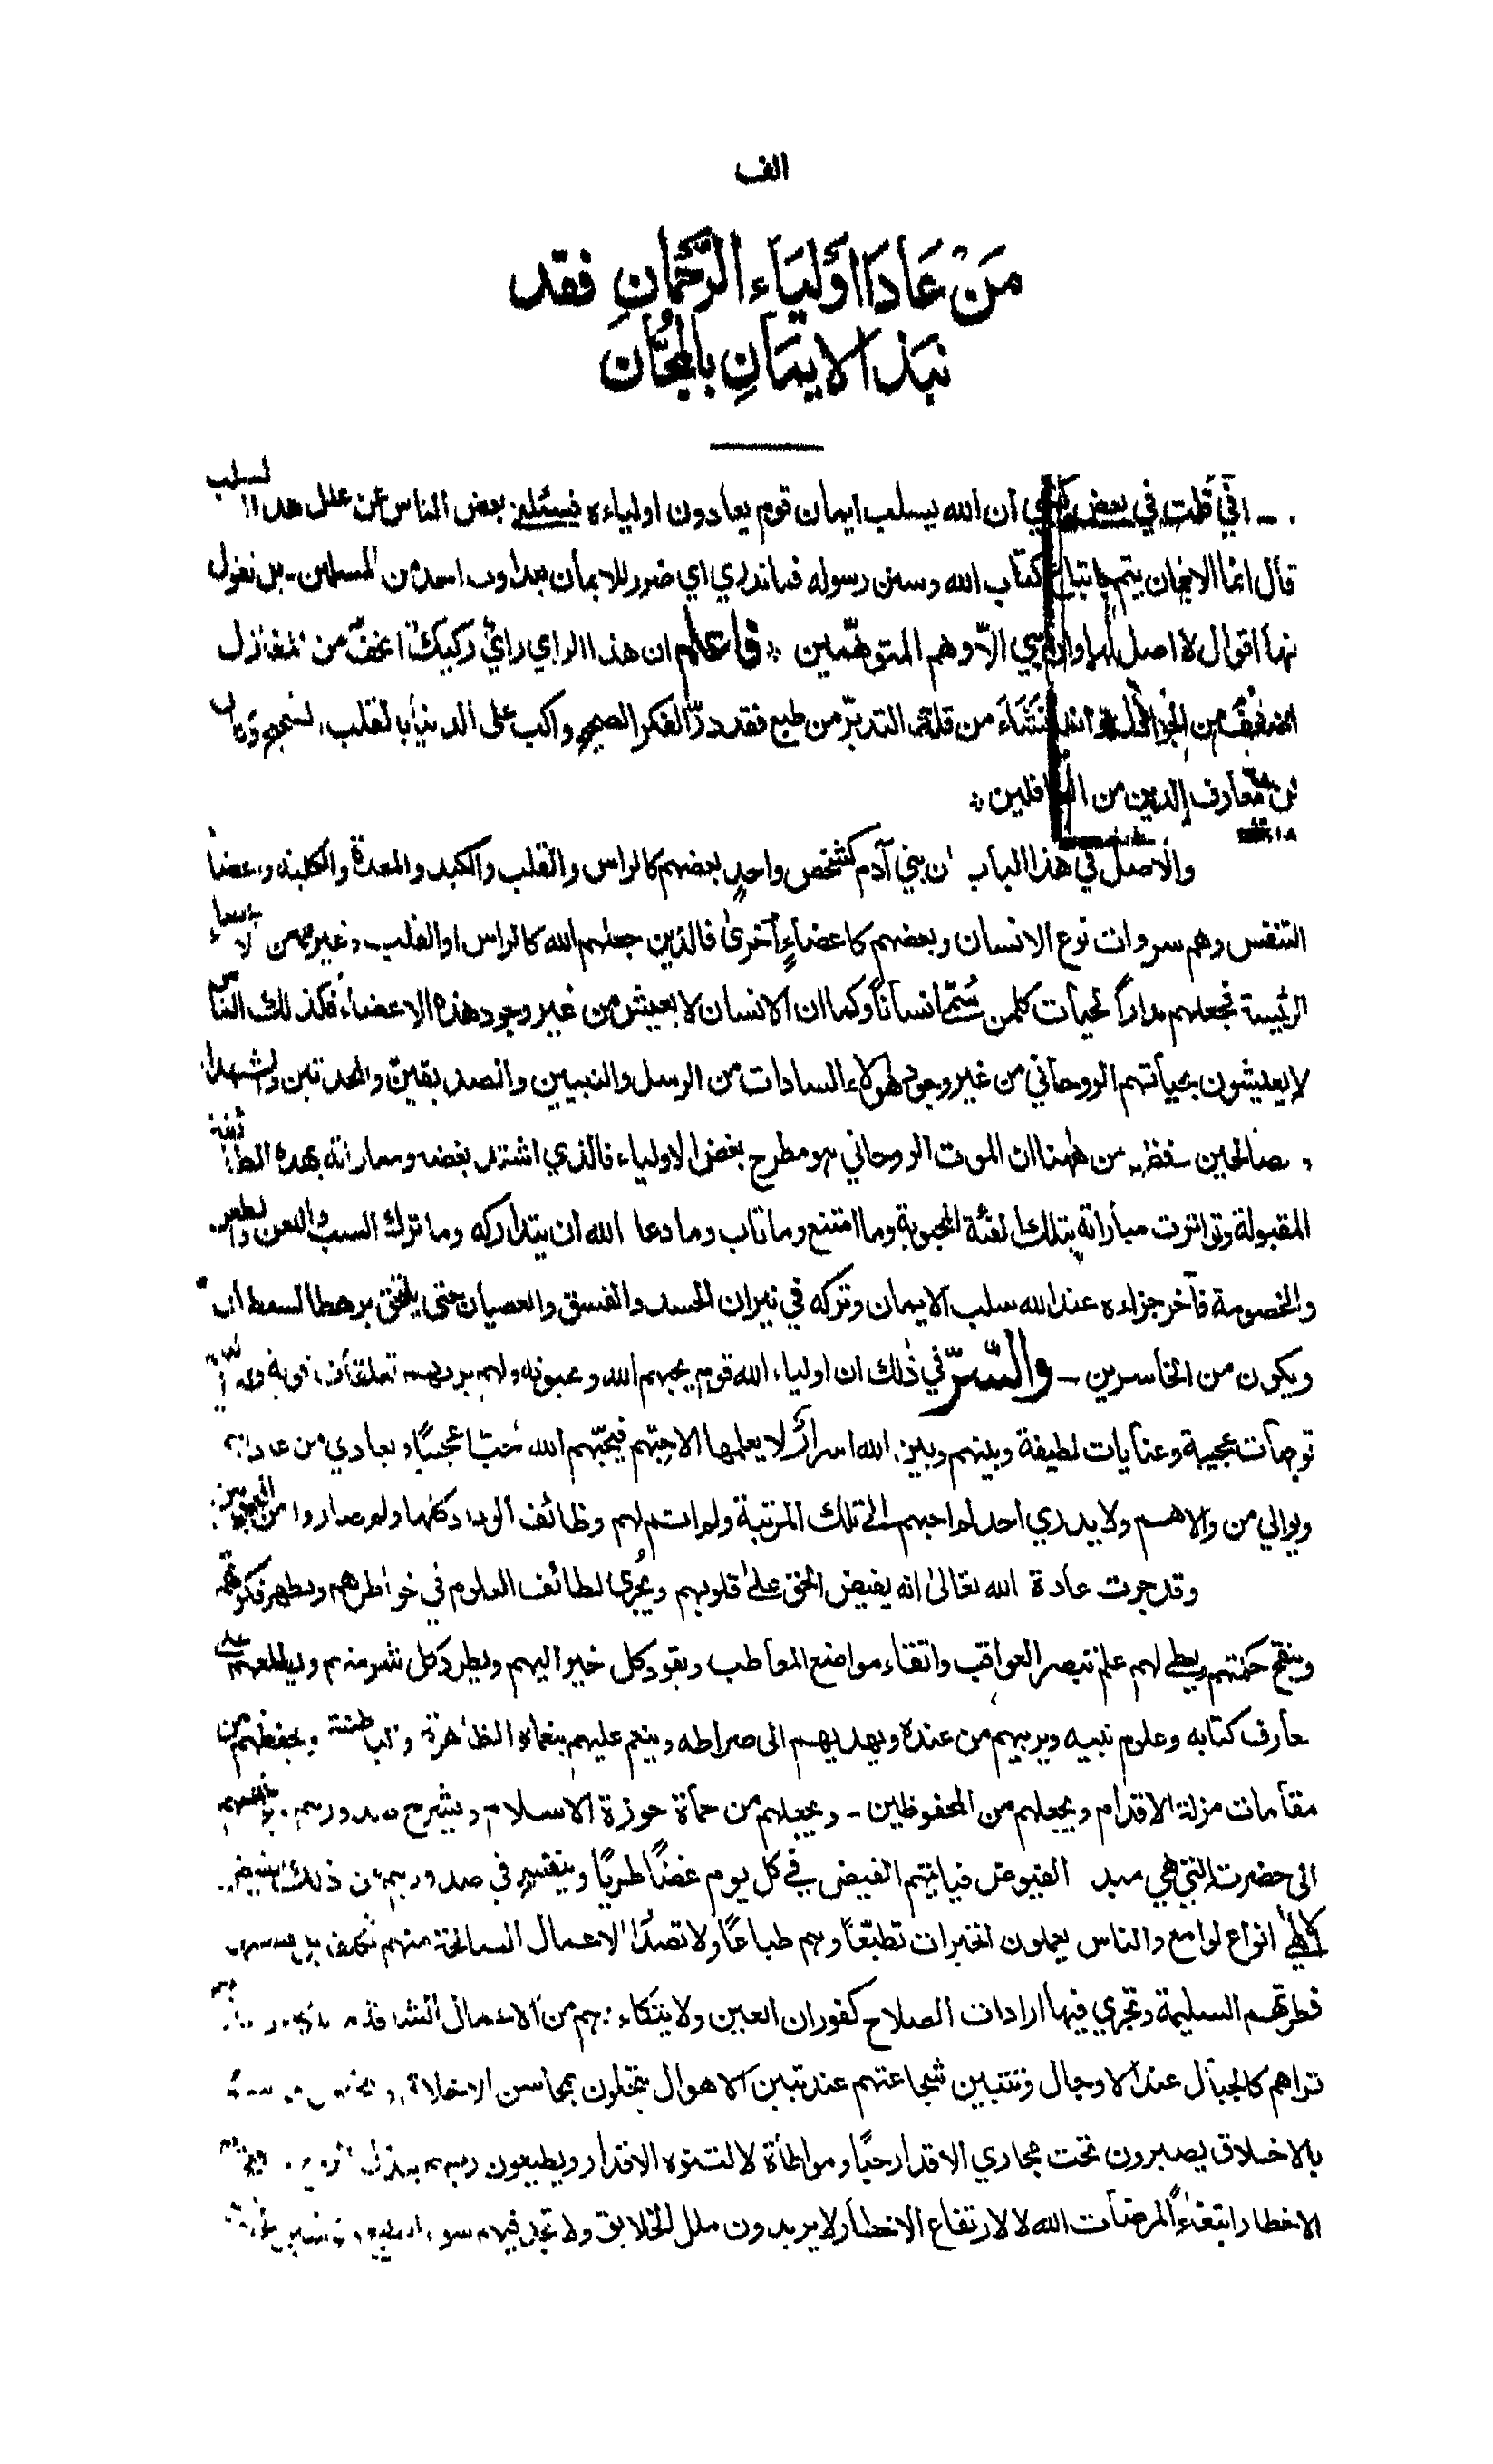 الف
مَنْ عَادَا أَوْلِيَاء الرَّحْمَانِ فقد
نبذ الايمَانِ بالمَجَّان
انّي قلت في بعض ان الله يسلب ايمان قوم يعادون اولياءه فسئلني بعض الناس عن علل هذا السلب
قال انما الايمان يتم باتباع كتاب الله وسنن رسوله فما ندري اي ضرر للايمان بعداوت احد من المسلمين۔ بل نقول
اقوال لا اصل لها الّا وهم المتوهّمين ؞ فاعلم ان هذا الراي رايٌ ركيك اخف من المغازل
اضعف من من قلة التدبّر من طبع فقد درّ الفكر الصحيح واكب على الدنيا بالقلب الشحيح
معارف الدين من الغافلين ؞
والاصل في هذا الباب ان بني آدم كشخص واحدٍ بعضهم كالراس والقلب والكبد والمعدة والكلية واعضاء
التنفس وهم سروات نوع الانسان وبعضهم كاعضاءٍ اخرىٰ فالذين جعلهم الله كالراس او القلب وغيرهما من الاعضاء
الرئيسة فجعلهم مدارًا لحيات كلمن سُمّي انسانًا وكما ان الانسان لا يعيش من غير وجود هذه الاعضاء فكذلك الناس
لا يعيشون بحياتهم الروحاني من غير وجود هٰؤلاء السادات من الرسل والنبيين والصديقين والمحدثين والشهداء
والصالحين فظهر من هٰهنا ان الموت الروحاني هو مطرح بغض الاولياء فالذي اشتد بغضه ومماراته بهذه الطائفة
المقبولة وتواترت مباراته بتلك الفئة المحبوبة وما امتنع وما تاب وما دعا الله ان يتداركه وما ترك السب واللعن والطعن
والخصومة فآخر جزاءه عند الله سلب الايمان وتركه في نيران الحسد والفسق والعصيان حتى يلتحق برهط الشيطان
ويكون من الخاسرين ـ والسّرّ في ذٰلك ان اولياء الله قوم يحبهم الله ويحبونه ولهم بربهم تعلقات
توجهات عجيبة وعنايات لطيفة وبينهم وبين الله اسرار لا يعلمها الا حِبّهم فيحبّهم الله حُبّا عجيبًا ويعادي من عاداهم
ويوالي من والاهم ولا يدري احد لم احبهم الى تلك المرتبة ولم اتم لهم وظائف الوداد كلها ولم صاروا من المحبوبين
وقد جرت عادة الله تعالىٰ انه يفيض الحق علىٰ قلوبهم ويُجري لطائف العلوم في خواطرهم ويطهر فكرتهم
وينقح حكمتهم ويعطي لهم علم تبصر العواقب واتقاء مواضع المعاطب ويقود كل خير اليهم ويطرد كل شر منهم ويطلعهم على
معارف كتابه وعلوم نبيه ويربيهم من عنده ويهديهم الى صراطه وينعم عليهم بنعماءه الظاهرة والباطنة ويحفظهم من
مقامات مزلة الاقدام ويجعلهم من المحفوظين ـ ويجعلهم من حماة حوزة الاسلام ويشرح صدورهم
الى حضرته التي هي مبدء الفيوض فياتيهم الفيض في كل يوم غضًا طريًا وينفتح في صدورهم من ذلك الفيض
انواع لوامع والناس يعملون الخيرات تطبّعًا وهم طباعًا ولا تصدر الاعمال الصالحة منهم
فطرتهم السليمة وتجري فيها ارادات الصلاح كفوران العين ولا يتكاءدهم من الاعمال الشاقة
تراهم كالجبال عند الاوجال وتتبين شجاعتهم عند تبين الاهوال يتحلون بمحاسن الاخلاق
بالاخلاق يصبرون تحت مجاري الاقدار حبًا ومواطأة لا لتنوه الاقدار ويطيعون ربهم ببذل
الاخطار ابتغاءً لمرضات الله لا لارتفاع الاخطار لا يريدون ملل الخلايق ولا تجد فيهم سوء